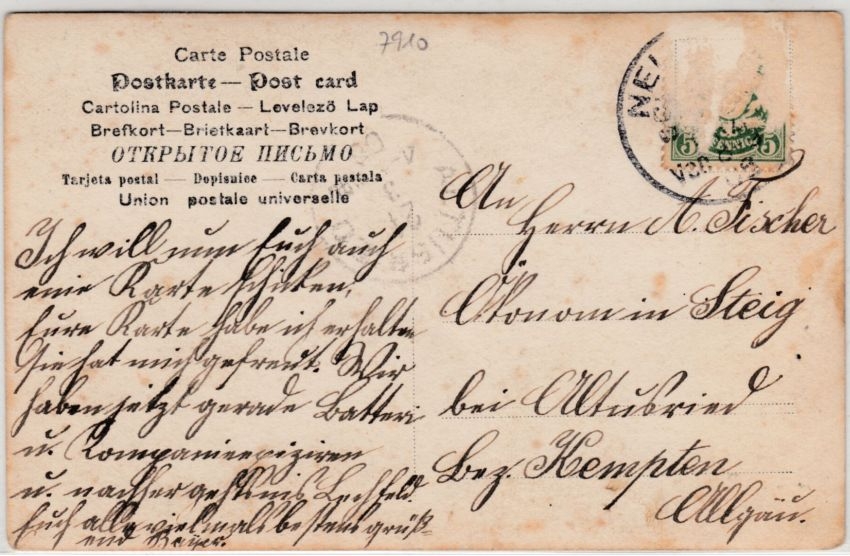 7910
Carte Postale
Postkarte — Post card
Cartolina Postale — Levelező Lap
Brefkort—Briefkaart—Brevkort
ОТКРЫТОЕ ПИСЬМО
Tarjeta postal — Dopisnice — Carta postala
Union postale universelle
NEU
5 PFENNIG 5
ALTUSRIED
An
Herrn A. Fischer
Ökonom in Steig
bei Altusried
Bez. Kempten
Allgäu.
Ich will nun Euch auch
eine Karte schicken,
Eure Karte habe ich erhalten
Sie hat mich gefreut. Wir
haben jetzt gerade Batterie
u. Kompanieexizieren
u. nachher geht's ins Lechfeld.
Euch alle vielmals bestens grüß-
end Bayer.